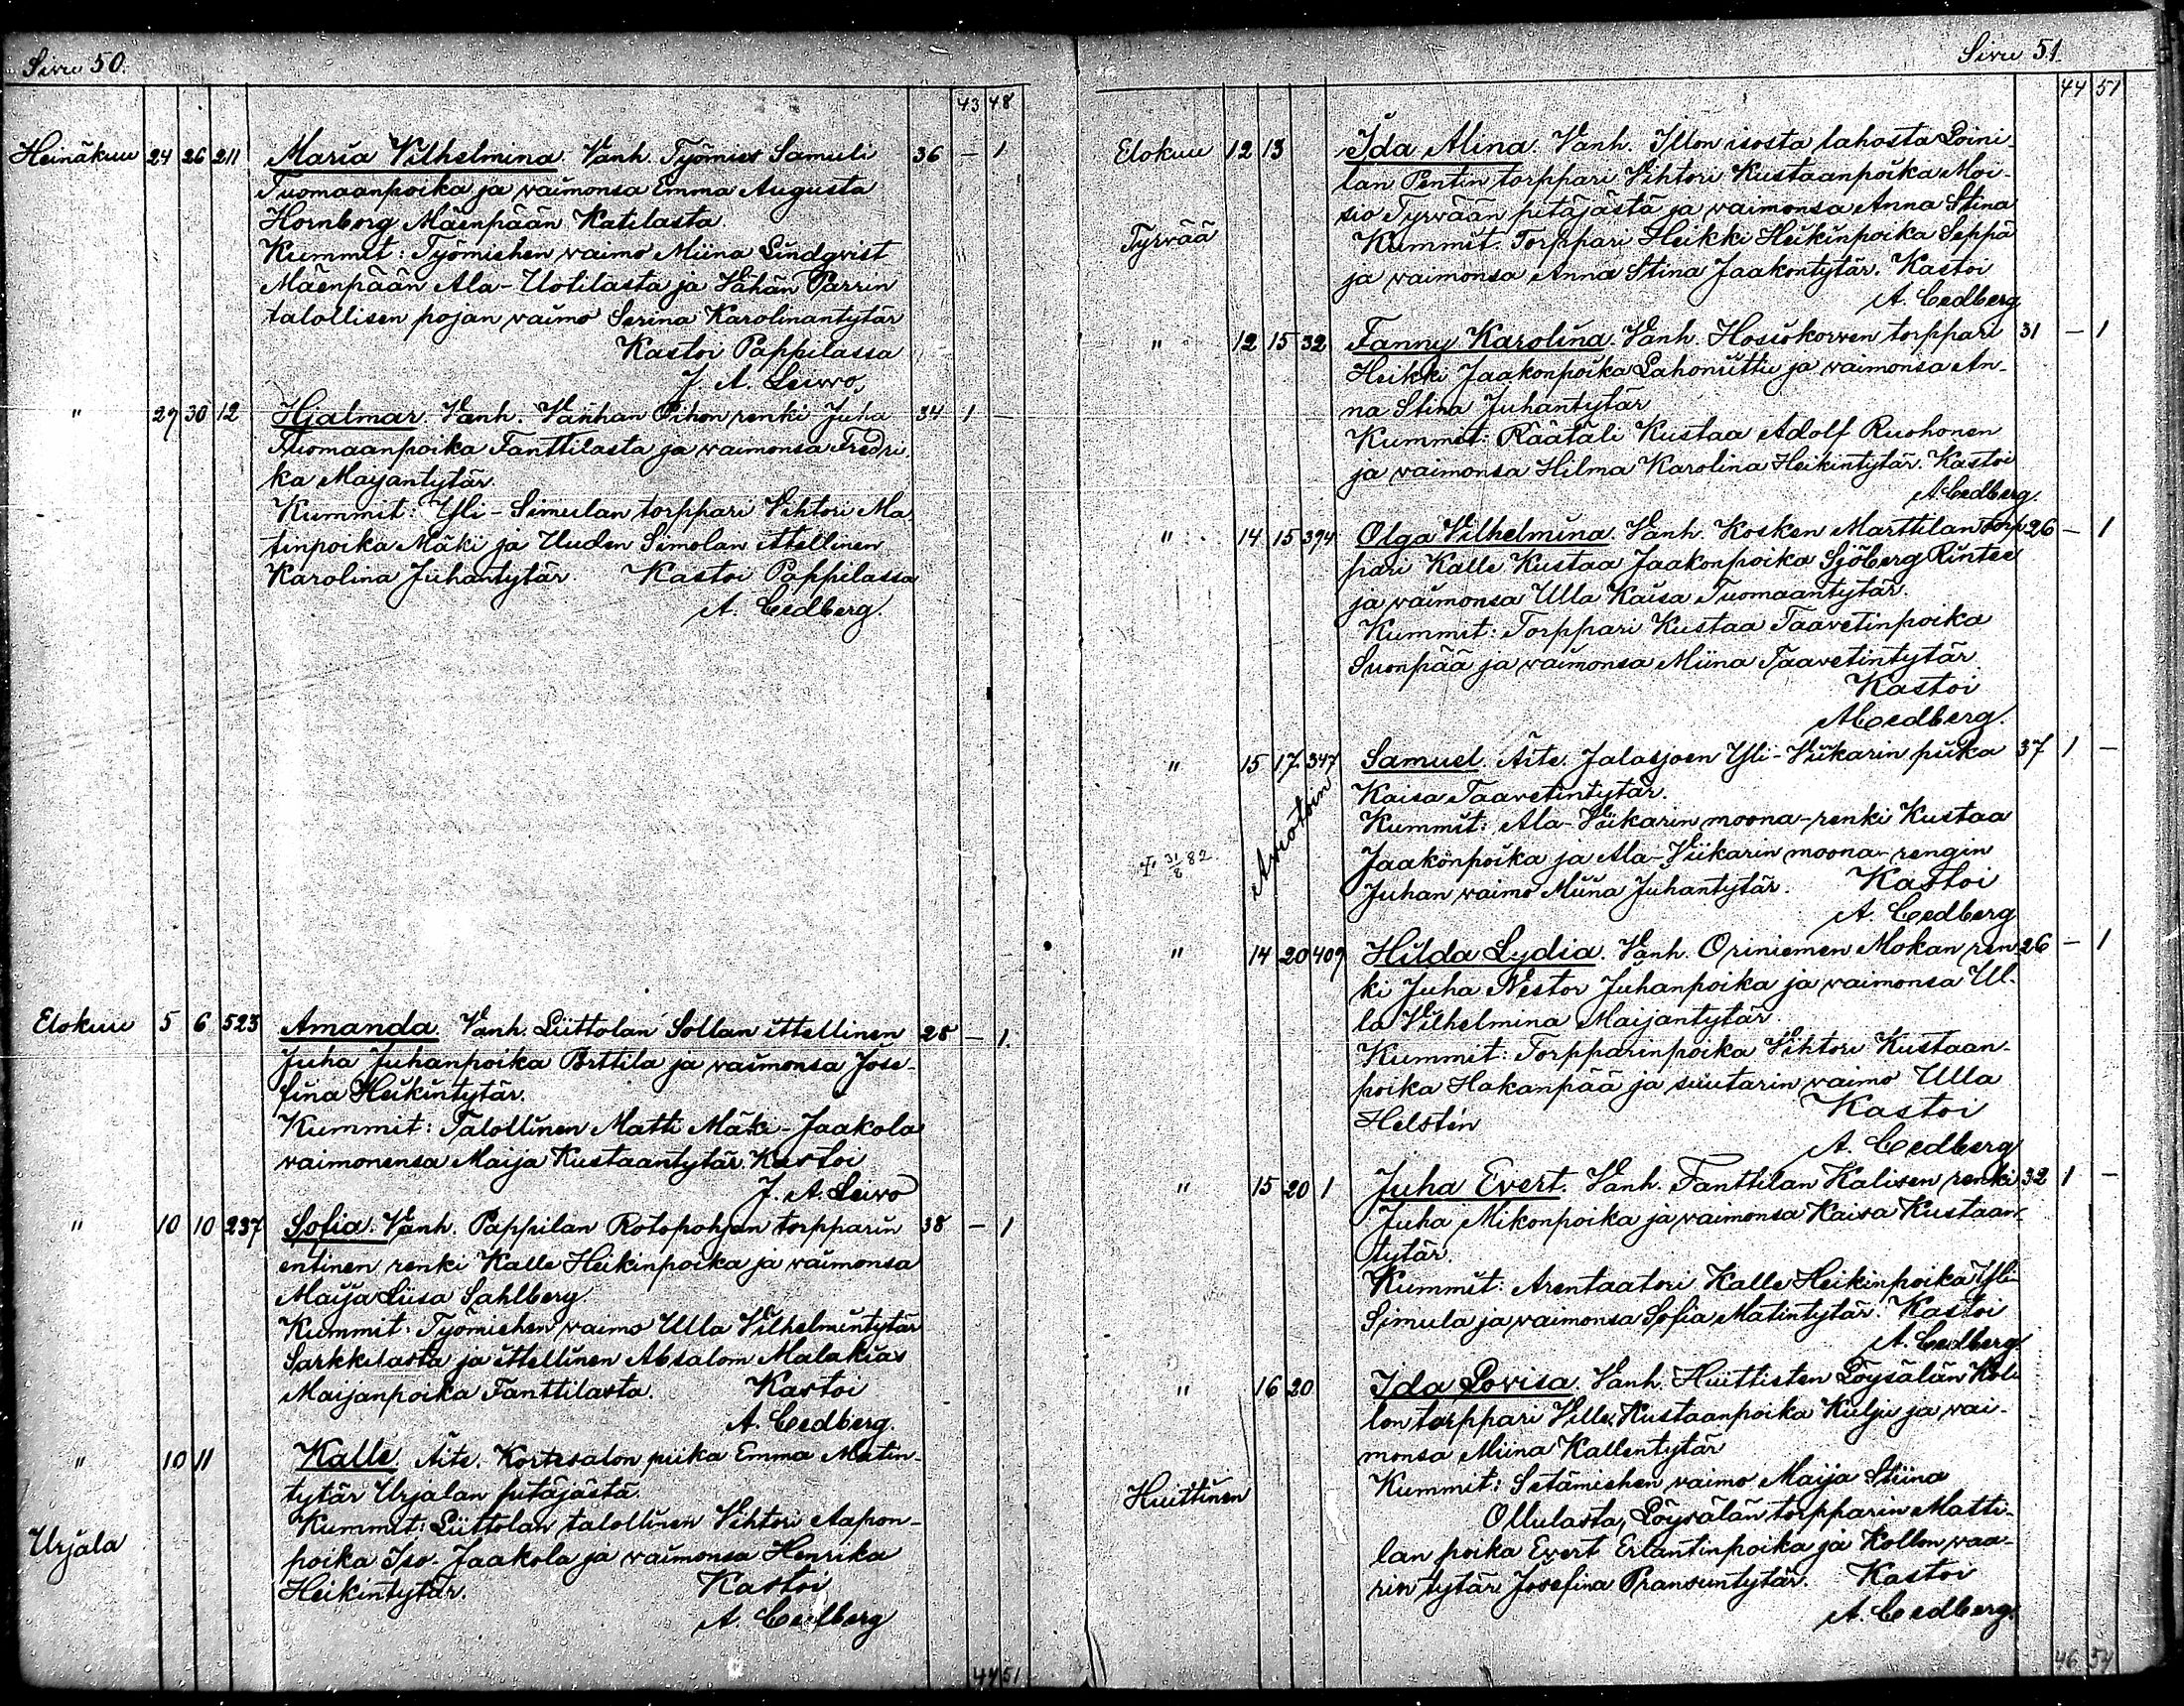 Sivu 50.
43 48
Heinäkuu 24 26 211 Maria Vilhelmina. Vanh. Työmies Samuli 36 — 1
Tuomaanpoika ja vaimonsa Emma Augusta
Hornborg Mäenpään Katilasta.
Kummit: Työmiehen vaimo Miina Lindqvist
Mäenpään Ala-Uotilasta ja Vähän Parrin
talollisen pojan vaimo Serina Karolinantytär
Kastoi Pappilassa
J. A. Leivo,
" 27 30 12 Hjalmar. Vanh. Vanhan Pihon renki Juha 34 1 —
Tuomaanpoika Fanttilasta ja vaimonsa Fredri-
ka Maijantytär.
Kummit: Yli-Simulan torppari Vihtori Ma-
tinpoika Mäki ja Uuden Simolan ittellinen
Karolina Juhantytär. Kastoi Pappilassa
A. Cedberg.
Elokuu 5 6 523 Amanda. Vanh. Liittolan Sollan ittellinen 28 — 1.
Juha Juhanpoika Porttila ja vaimonsa Jose-
fina Heikintytär.
Kummit: Talollinen Matti Mäki-Jaakola
vaimonensa Maija Kustaantytär. Kastoi
J. A. Leivo
" 10 10 237 Sofia. Vanh. Pappilan Rotopohjan torpparin 38 — 1
entinen renki Kalle Heikinpoika ja vaimonsa
Maija Liisa Sahlberg.
Kummit: Työmiehen vaimo Ulla Vilhelmintytär
Sarkkilasta ja ittellinen Absalom Malakias
Maijanpoika Fanttilasta. Kastoi
A. Cedberg.
" 10 11 Kalle. Äite. Kortesalon piika Emma Matin-
tytär Urjalan pitäjästä.
Kummit: Liittolan talollinen Vihtori Aapon-
Urjala
poika Iso-Jaakola ja vaimonsa Henrika
Heikintytär. Kastoi
A. Cedberg
44 51
Sivu 51.
44 51
Elokuu 12 13 Ida Alina. Vanh. Illon isosta lahosta Loini-
lan Pentin torppari Vihtori Kustaanpoika Moi-
sio Tyrvään pitäjästä ja vaimonsa Anna Stina
Tyrvää
Kummit. Torppari Heikki Heikinpoika Seppä
ja vaimonsa Anna Stina Jaakontytär. Kastoi
A. Cedberg
" 12 15 32 Fanny Karolina. Vanh. Hosiokorven torppari 31 — 1
Heikki Jaakonpoika Lahoniittu ja vaimonsa An-
na Stina Juhantytär
Kummit: Räätäli Kustaa Adolf Ruohonen
ja vaimonsa Hilma Karolina Heikintytär. Kastoi
A. Cedberg.
" 14 15 394 Olga Vilhelmina. Vanh. Kosken Marttilan torp- 26 — 1
pari Kalle Kustaa Jaakonpoika Sjöberg Rintee
ja vaimonsa Ulla Kaisa Tuomaantytär.
Kummit: Torppari Kustaa Taavetinpoika
Suonpää ja vaimonsa Miina Taavetintytär.
Kastoi
A Cedberg.
" 15 17 347 Samuel. Äite. Jalasjoen Yli-Viikarin piika 37 1 —
Kaisa Taavetintytär.
Aviotoin
Kummit: Ala-Viikarin moona-renki Kustaa
† 31/8 82
Jaakonpoika ja Ala-Viikarin moona-rengin
Juhan vaimo Miina Juhantytär. Kastoi
A. Cedberg
" 14 20 409 Hilda Lydia. Vanh. Oriniemen Mokan ren- 26 — 1
ki Juha Nestor Juhanpoika ja vaimonsa Ul-
la Vilhelmina Maijantytär.
Kummit: Torpparinpoika Vihtori Kustaan-
poika Hakanpää ja suutarin vaimo Ulla
Helstén Kastoi
A. Cedberg
" 15 20 1 Juha Evert. Vanh. Fanttilan Kalisen renki 32 1 —
Juha Mikonpoika ja vaimonsa Kaisa Kustaan-
tytär.
Kummit: Arentaatori Kalle Heikinpoika Yli-
Simula ja vaimonsa Sofia Matintytär. Kastoi
A. Cedberg.
" 16 20 Ida Lovisa. Vanh. Huittisten Löysälän Kol-
lon torppari Ville Kustaanpoika Kulju ja vai-
monsa Miina Kallentytär
Huittinen
Kummit: Setämiehen vaimo Maija Stiina
Ollulasta, Löysälän torpparin Matti-
lan poika Evert Erlantinpoika ja Kollon vaa-
rin tytär Josefina Pransuntytär. Kastoi
A. Cedberg.
46 54